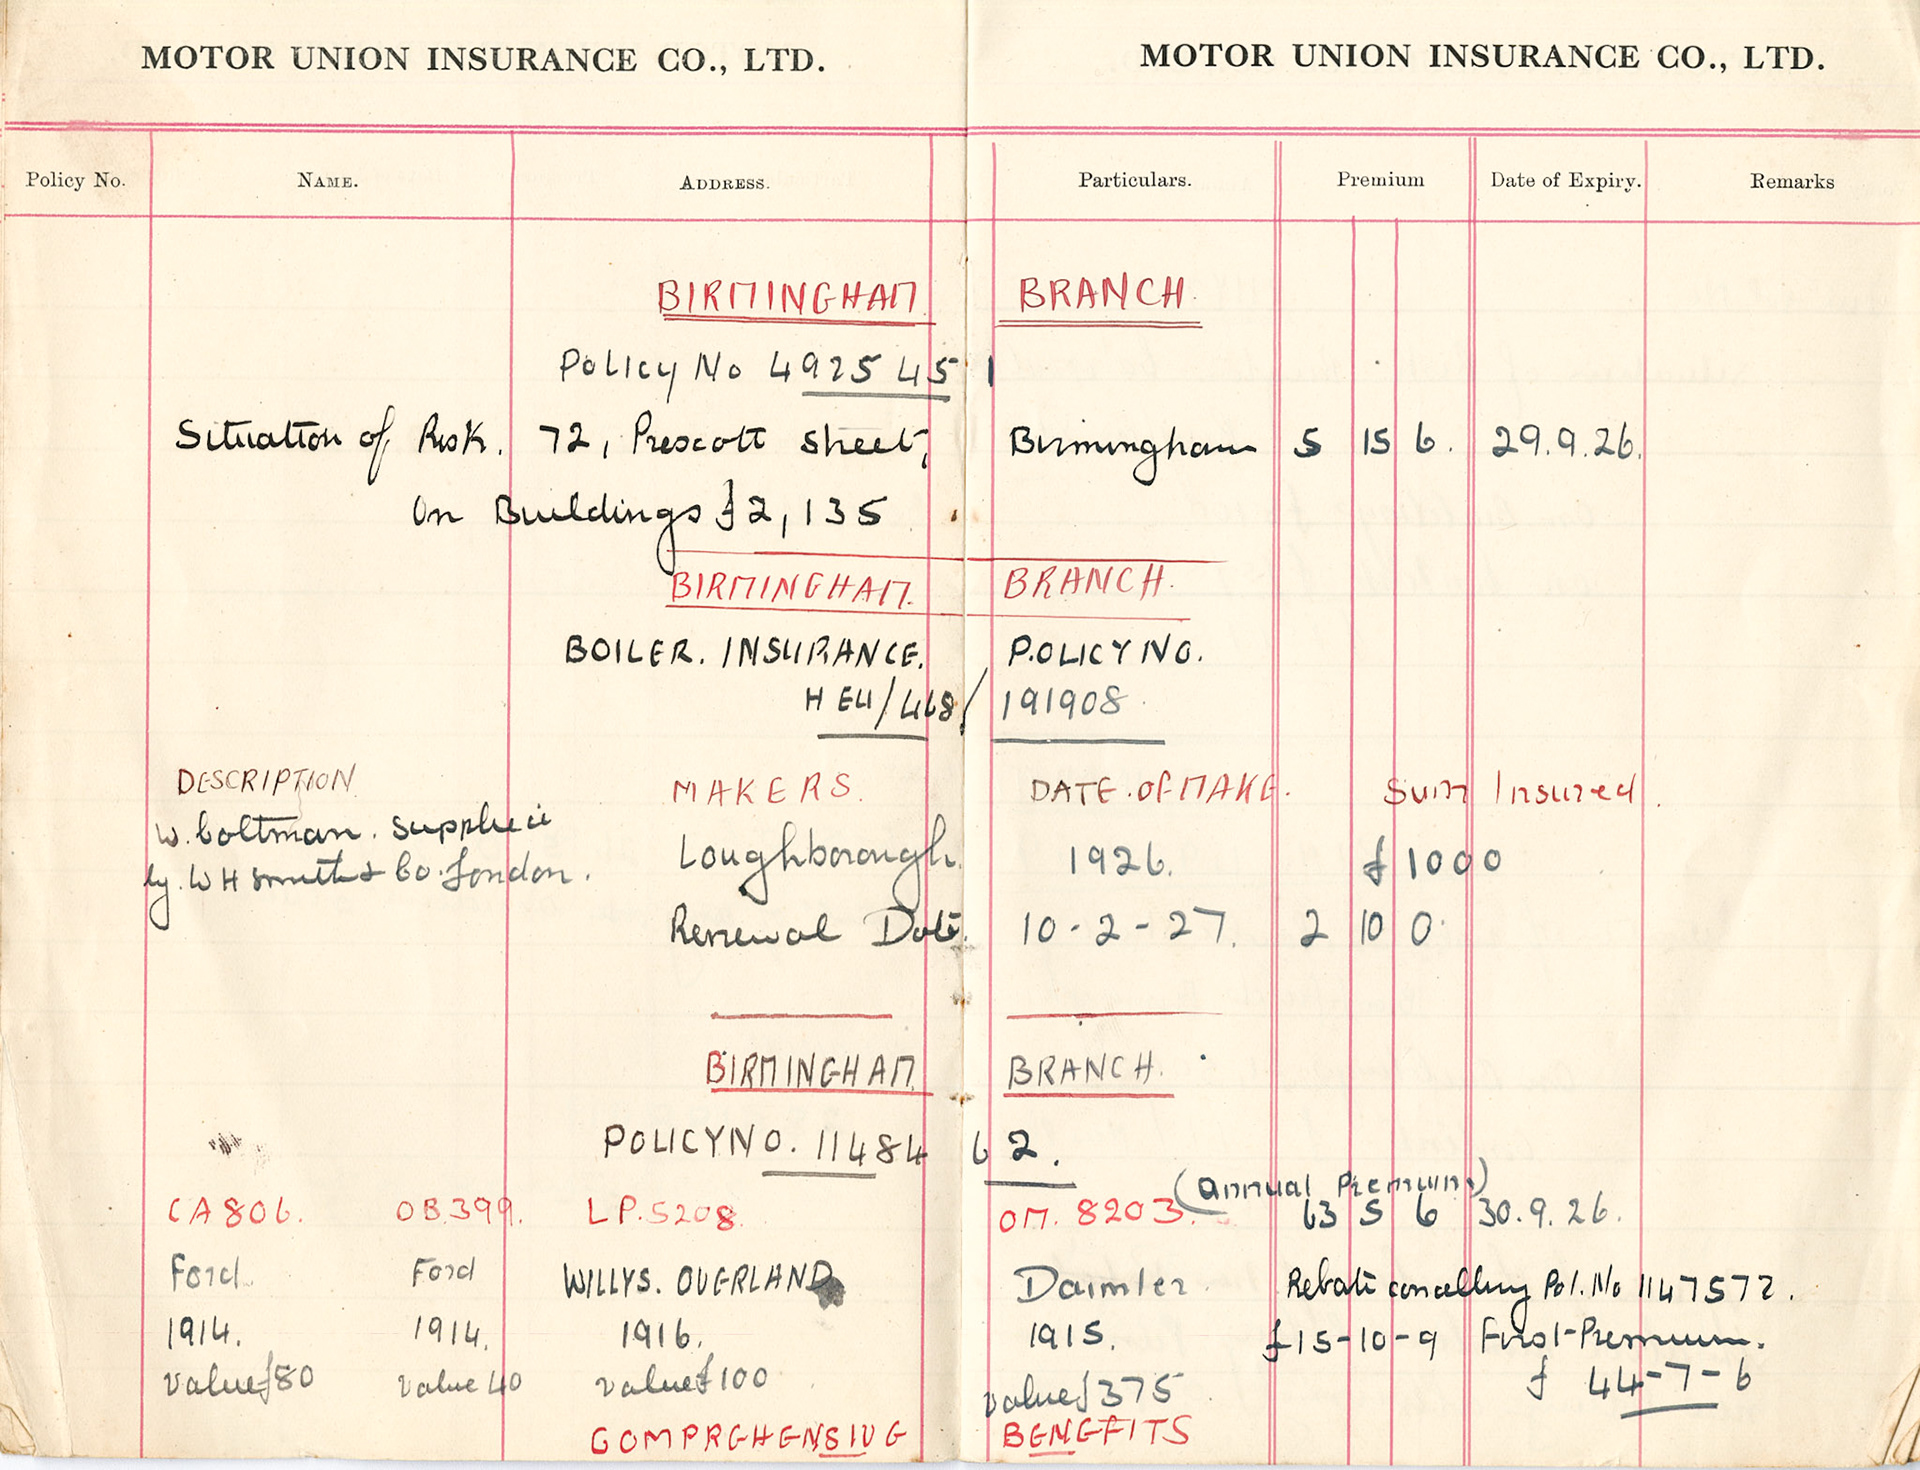 MOTOR UNION INSURANCE CO., LTD. MOTOR UNION INSURANCE CO., LTD.
Policy No. NAME. ADDRESS. Particulars. Premium Date of Expiry. Remarks
BIRMINGHAM BRANCH.
Policy No 4925451
Situation of Risk. 72, Prescott Street, Birmingham 5 15 6. 29.9.26.
On Buildings £2,135
BIRMINGHAM. BRANCH.
BOILER. INSURANCE. POLICY NO.
/468/191908
DESCRIPTION MAKERS. DATE.OF MAKE. Sum Insured.
W. Coltman. supplied
by. W H Smith & Co. London. Loughborough. 1926. £1000
Renewal Date. 10-2-27. 2 10 0.
BIRMINGHAM BRANCH.
POLICY NO. 1148462.
(Annual Premium)
CA 806. OB.399. LP.5208. OM. 8203. 63 5 6 30.9.26.
Ford. Ford WILLYS. OVERLAND Daimler. Rebate cancelling Pol. No 1147572.
1914. 1914. 1916. 1915. £15-10-9 First-Premium.
value £80 value 40 value £100 value £375 £ 44-7-6
COMPREHENSIVE BENEFITS